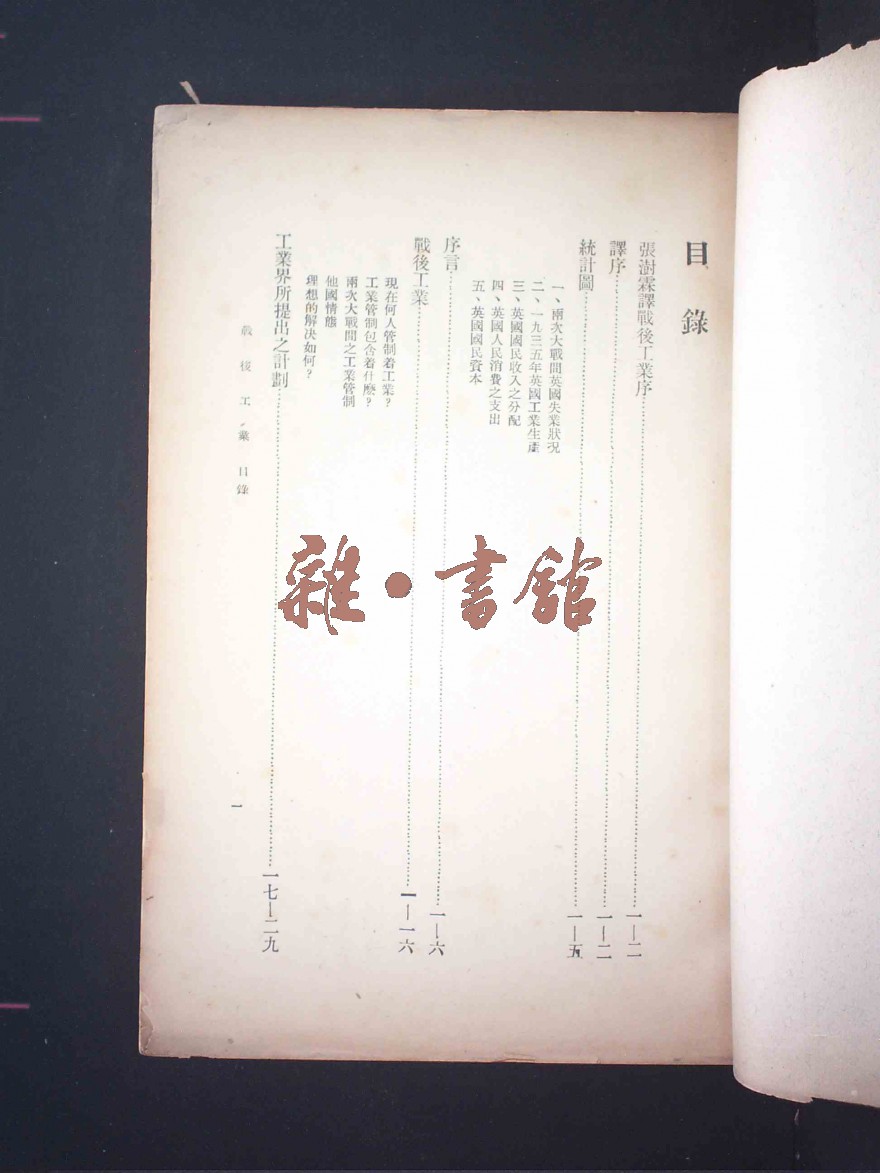 目錄
張澍霖譯戰後工業序……一—二
譯序……一—二
統計圖……一—五
一、兩次大戰間英國失業狀况
二、一九三五年英國工業生產
三、英國國民收入之分配
四、英國人民消費之支出
五、英國國民資本
序言……一—六
戰後工業……一—一六
現在何人管制着工業？
工業管制包含着什麽？
兩次大戰間之工業管制
他國情態
理想的解决如何？
工業界所提出之計劃……一七—二九
戰後工業目錄
一
雜·書館